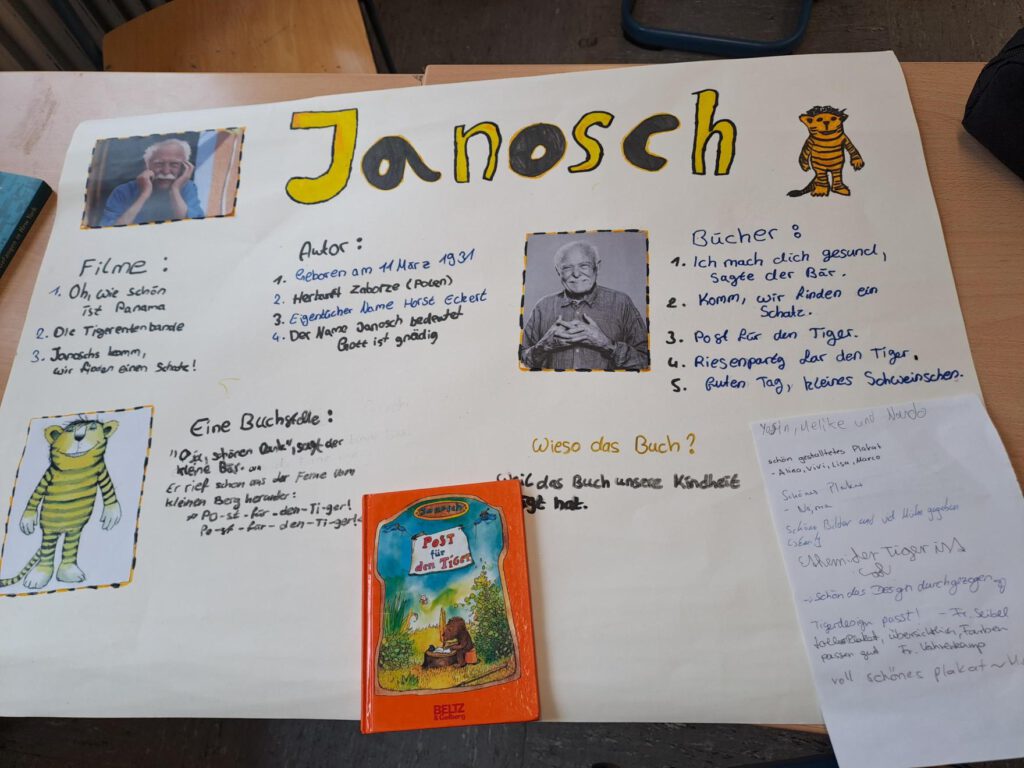 Janosch
Filme :
1. Oh, wie schön
ist Panama
2. Die Tigerentenbande
3. Janoschs komm,
wir finden einen Schatz!
Autor :
1. Geboren am 11 März 1931
2. Herkunft Zaborze (Polen)
3. Eigentlicher Name Horst Eckert
4. Der Name Janosch bedeutet
Gott ist gnädig
Bücher :
1. Ich mach dich gesund,
sagte der Bär.
2. Komm, wir finden ein
Schatz.
3. Post für den Tiger.
4. Riesenparty für den Tiger.
5. Guten Tag, kleines Schweinchen.
Eine Buchstelle :
schönen Dank", sagt der
kleine Bär.
Er rief schon aus der Ferne vom
kleinen Berg herunter:
Po-st-für-den-Ti-ger!
Po-st-für-den-Ti-ger!
Wieso das Buch ?
Weil das Buch unsere Kindheit
hat.
Janosch
Post
für
den Tiger
BELTZ
& Gelberg
Melike und
schön gestaltetes Plakat
- Vivi, Lisa, Marco
Schönes Plakat
Schöne Bilder und viel Mühe gegeben
der Tiger ist
schön das Design durchgezogen
Tigerdesign passt! - Fr. Seibel
tolles Plakat, übersichtlich, Farben
passen gut Fr.
voll schönes plakat